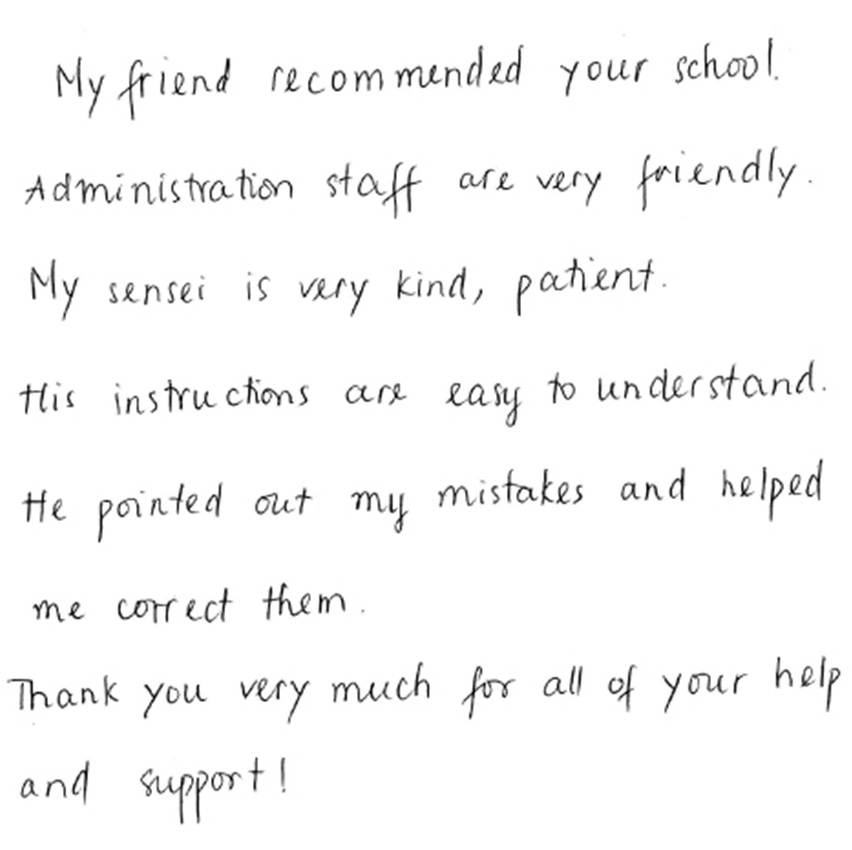 My friend recommended your school.
Administration staff are very friendly.
My sensei is very kind, patient.
His instructions are easy to understand.
He pointed out my mistakes and helped
me correct them.
Thank you very much for all of your help
and support!